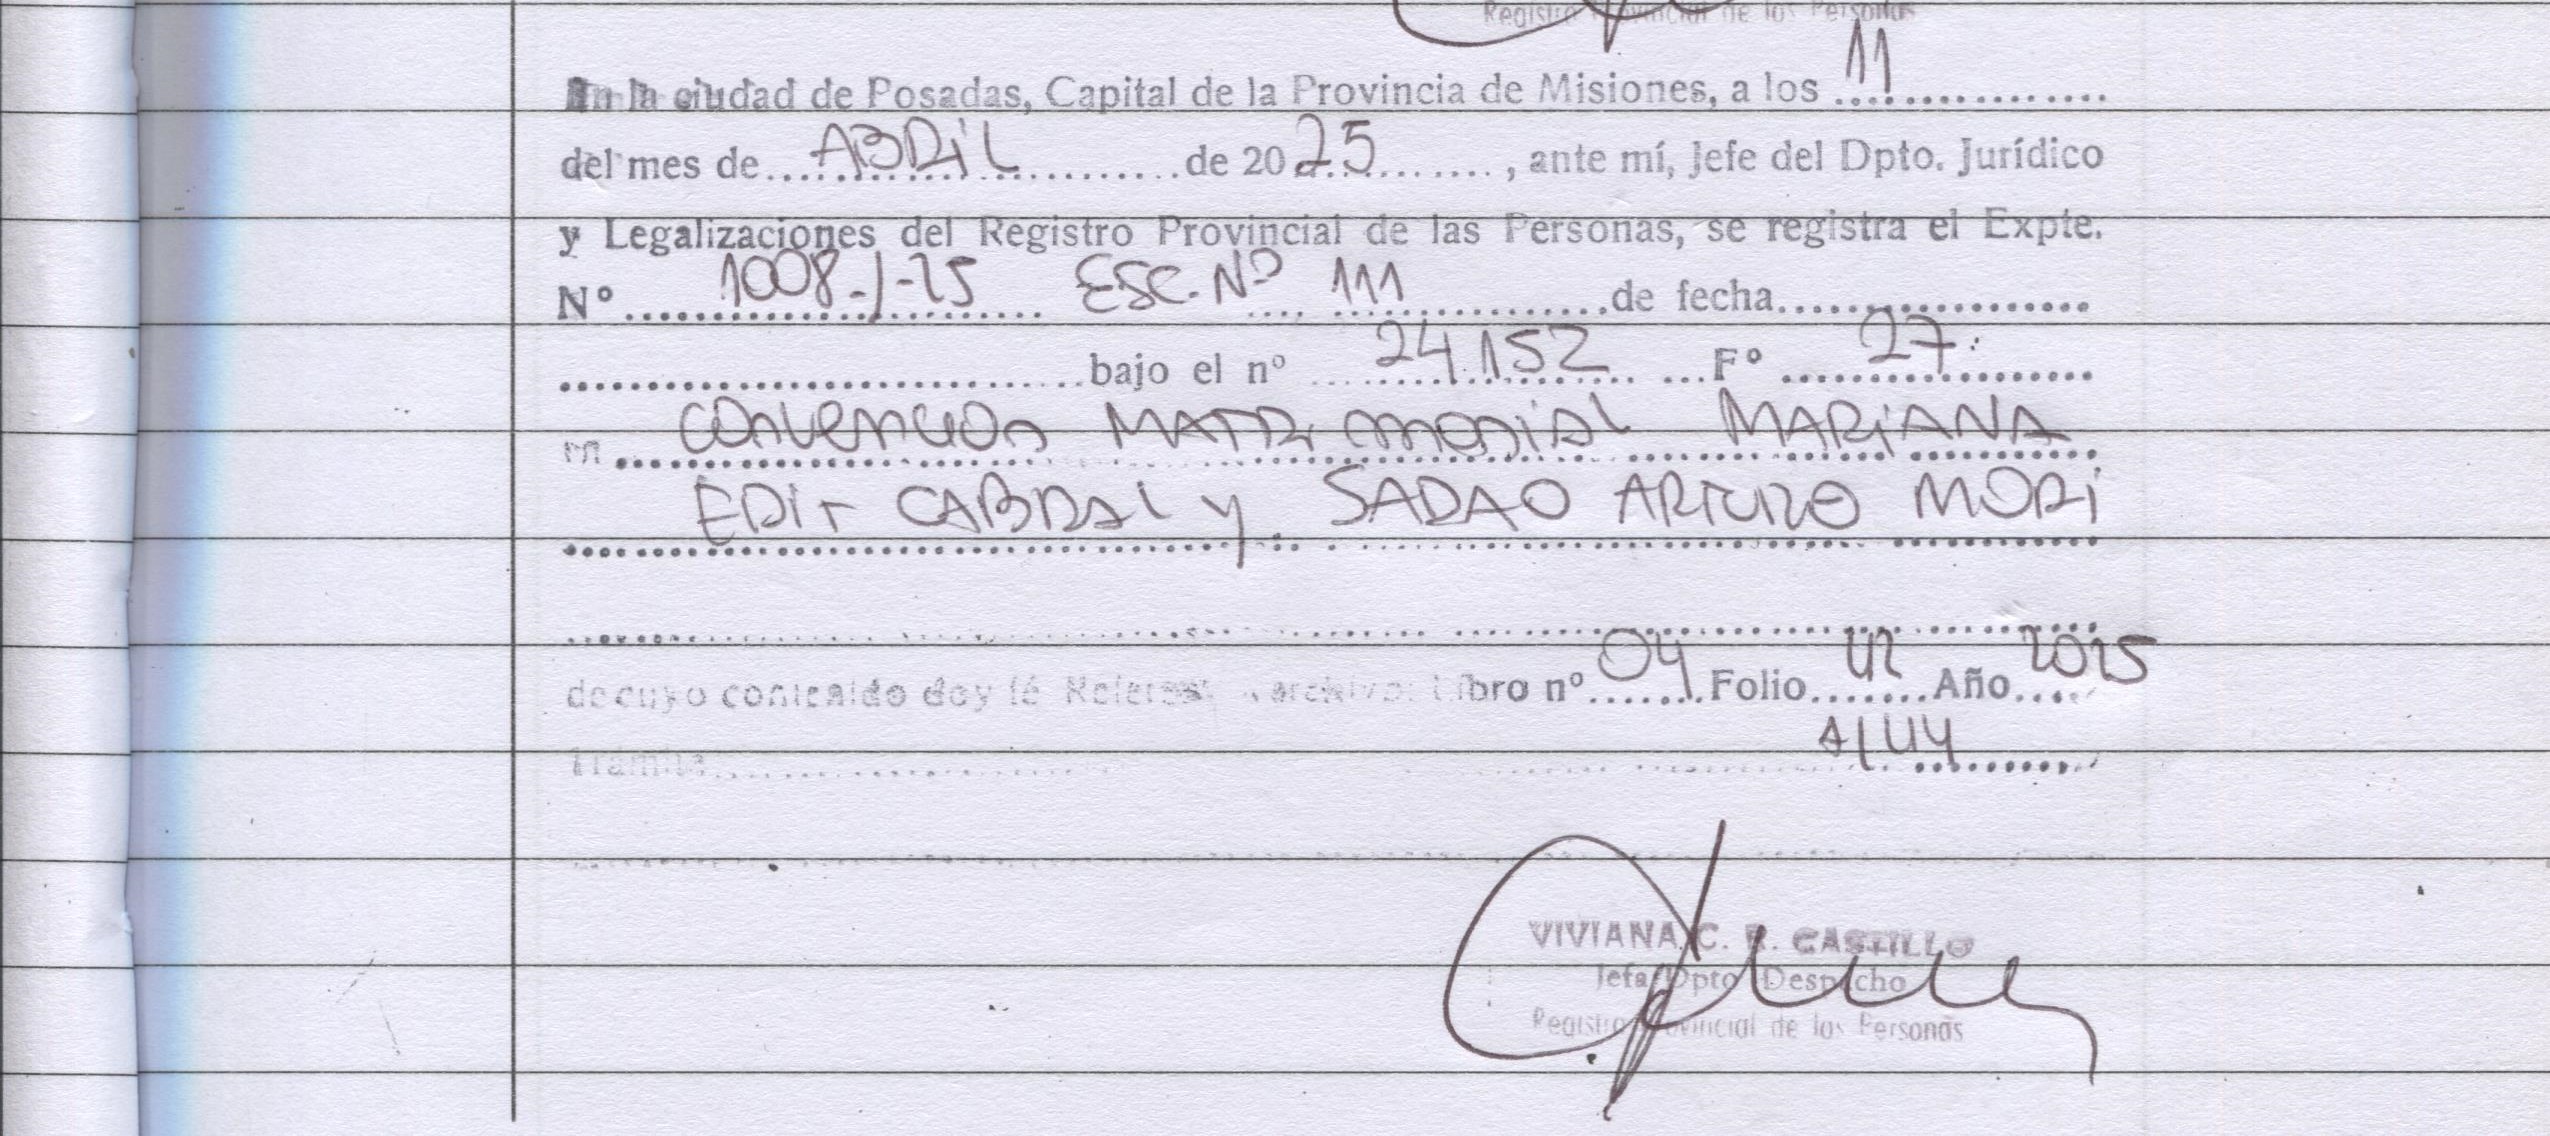 Registro Provincial de las Personas
En la ciudad de Posadas, Capital de la Provincia de Misiones, a los 11
del mes de ABRIL de 2025, ante mí, Jefe del Dpto. Jurídico
y Legalizaciones del Registro Provincial de las Personas, se registra el Expte.
Nº 1008-/-25 ESC. Nº 111 de fecha
bajo el nº 24.152 Fº 27
en convencion MATRIMONIAL MARIANA
EDIT CABRAL y SADAO ARTURO MORI
de cuyo contenido doy fé archivo: Libro nº 04 Folio 42 Año 2025
Trámite
VIVIANA C. R. CASTILLO
Jefa Dpto Despacho
Registro Provincial de las Personas